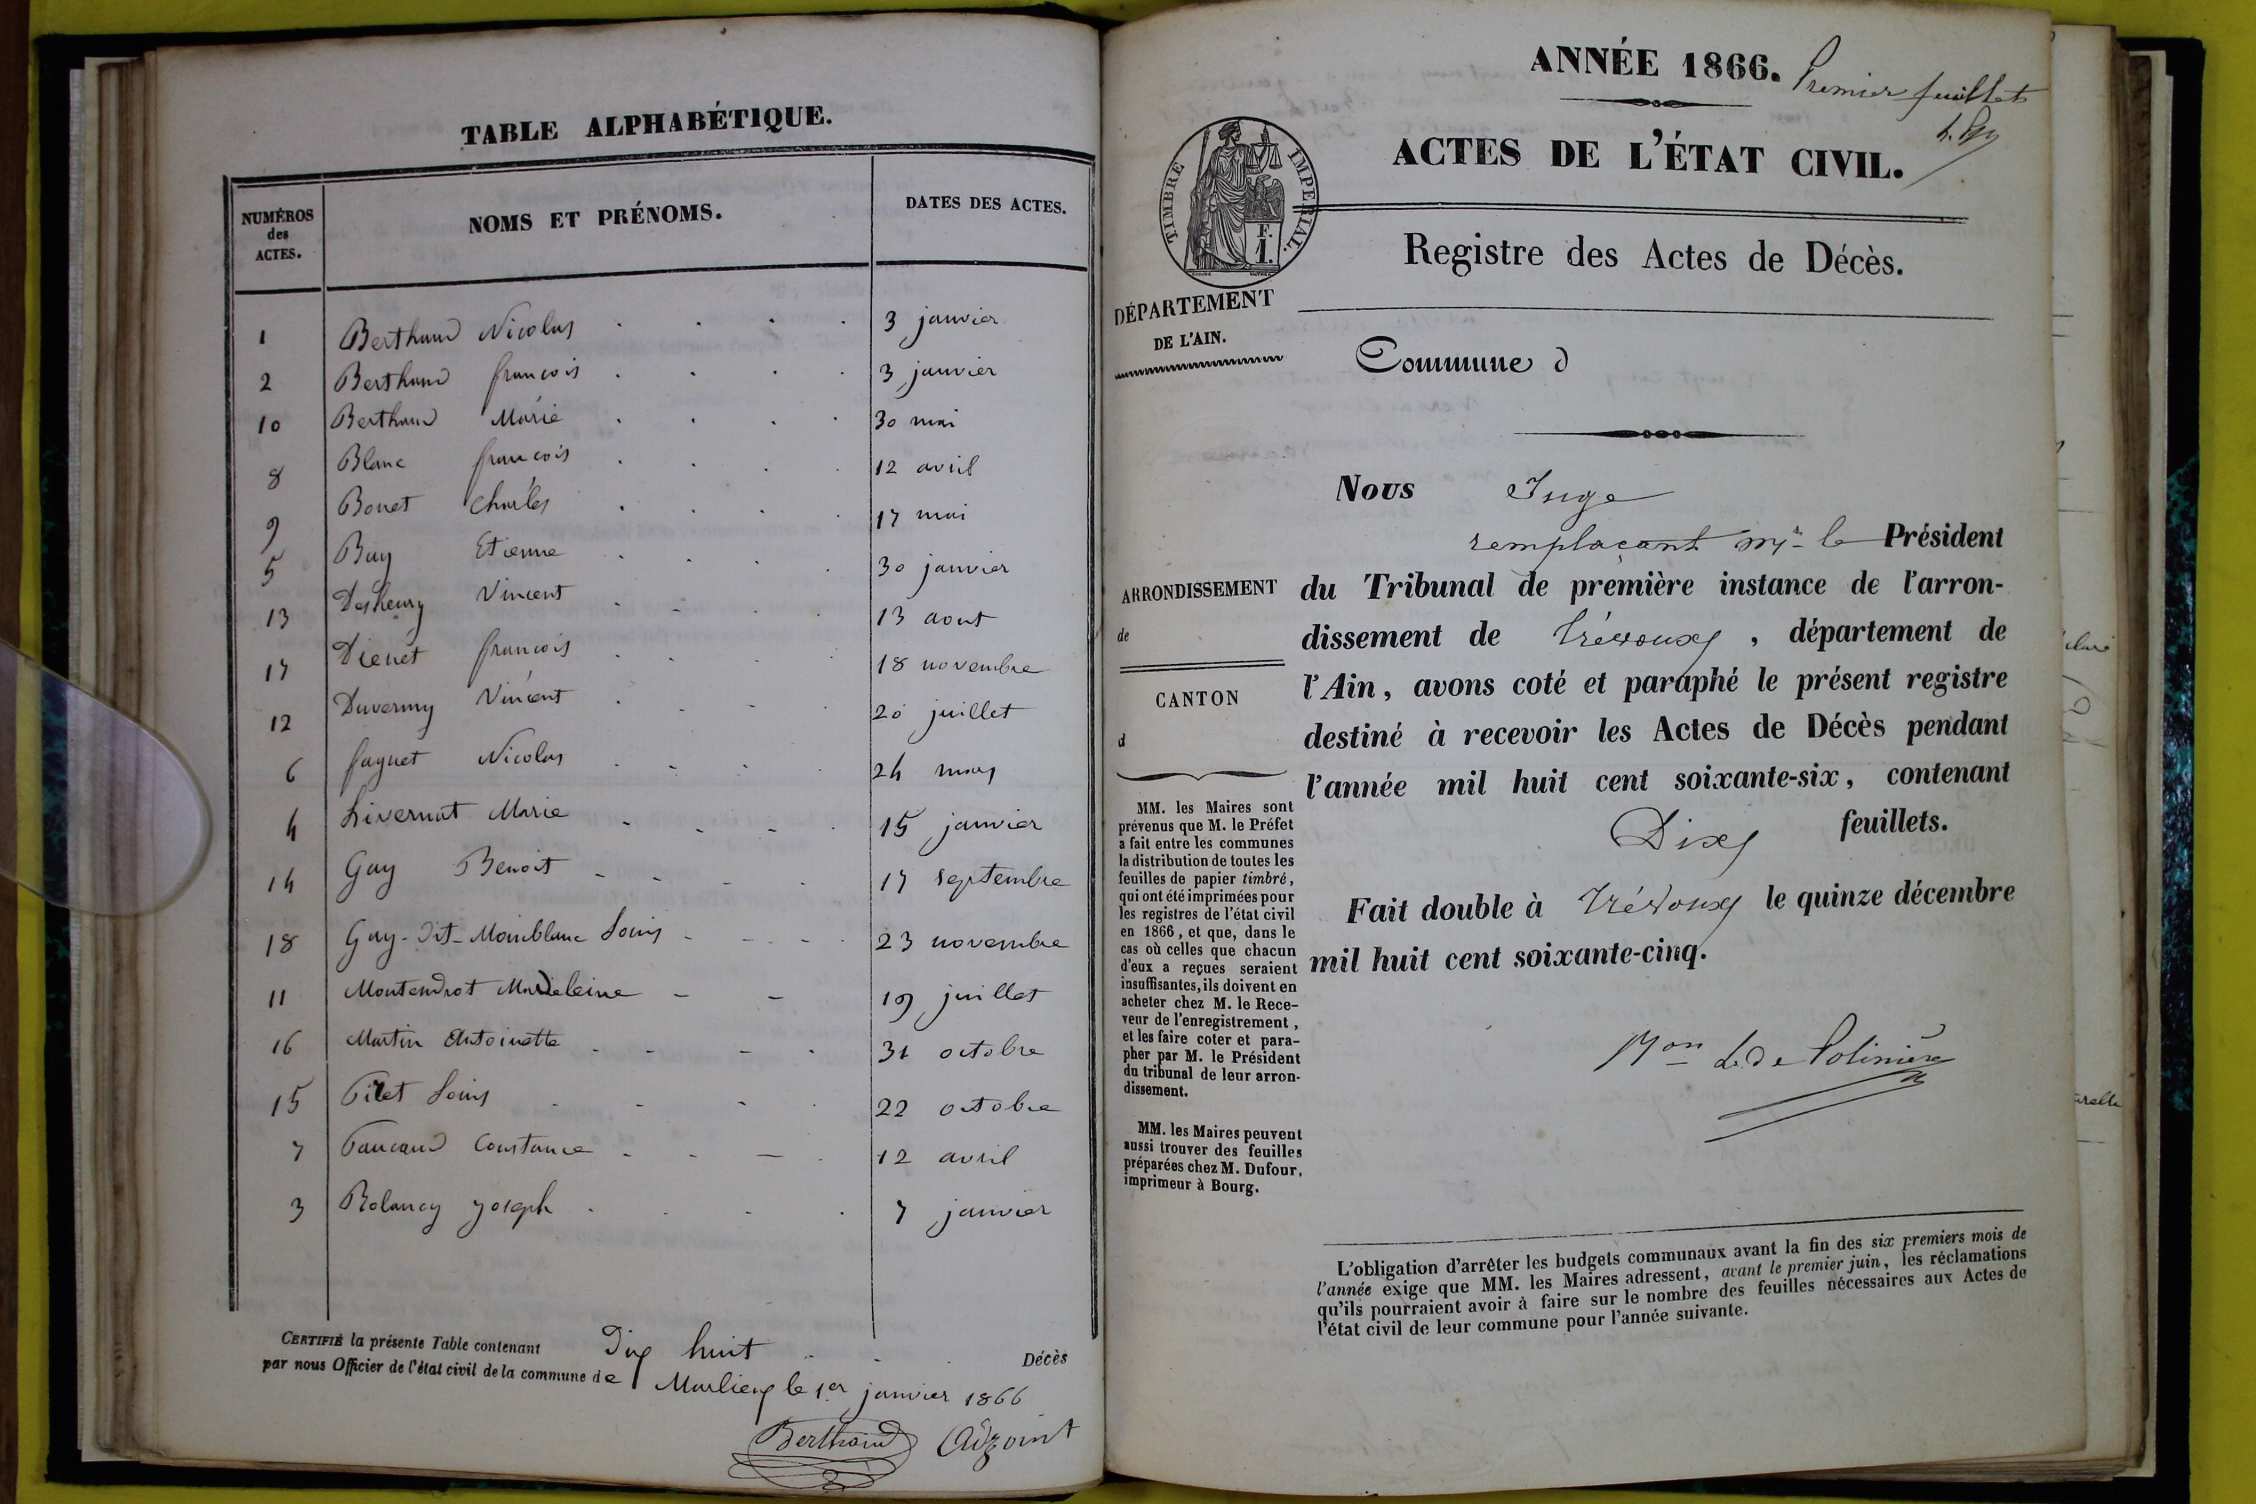 TABLE ALPHABÉTIQUE.
NUMÉROS des ACTES. NOMS ET PRÉNOMS. DATES DES ACTES.
1 Berthaud Nicolas 3 janvier
2 Berthaud francois 3 janvier
10 Berthaud Marie 30 mai
8 Blanc francois 12 avril
9 Bouet Charles 17 mai
5 Buy Etienne 30 janvier
13 Vincent 13 aout
17 Dienet francois 18 novembre
12 Duvernay Vincent 20 juillet
6 faguet Nicolas 24 mars
4 Livernat Marie 15 janvier
14 Guy Benoit 17 septembre
18 Guy-dit-Mainblanc Louis 23 novembre
11 Montendrot Madeleine 19 juillet
16 Martin Antoinette 31 octobre
15 Louis 22 octobre
7 Constance 12 avril
3 Rolancy Joseph 7 janvier
CERTIFIÉ la présente Table contenant Dix huit Décès
par nous Officier de l'état civil de la commune de Marlieux le 1er janvier 1866
Berthaud
ANNÉE 1866.
Premier feuillet
ACTES DE L'ÉTAT CIVIL.
TIMBRE IMPÉRIAL.
F.
1.
Registre des Actes de Décès.
DÉPARTEMENT
DE L'AIN.
Commune d
ARRONDISSEMENT
de
CANTON
d
MM. les Maires sont
prévenus que M. le Préfet
a fait entre les communes
la distribution de toutes les
feuilles de papier timbré,
qui ont été imprimées pour
les registres de l'état civil
en 1866, et que, dans le
cas où celles que chacun
d'eux a reçues seraient
insuffisantes, ils doivent en
acheter chez M. le Rece-
veur de l'enregistrement,
et les faire coter et para-
pher par M. le Président
du tribunal de leur arron-
dissement.
MM. les Maires peuvent
aussi trouver des feuilles
préparées chez M. Dufour,
imprimeur à Bourg.
Nous Juge
remplaçant Mr le Président
du Tribunal de première instance de l'arron-
dissement de Trévoux, département de
l'Ain, avons coté et paraphé le présent registre
destiné à recevoir les Actes de Décès pendant
l'année mil huit cent soixante-six, contenant
Dix feuillets.
Fait double à Trévoux le quinze décembre
mil huit cent soixante-cinq.
Mon L. de Polinière
L'obligation d'arrêter les budgets communaux avant la fin des six premiers mois de
l'année exige que MM. les Maires adressent, avant le premier juin, les réclamations
qu'ils pourraient avoir à faire sur le nombre des feuilles nécessaires aux Actes de
l'état civil de leur commune pour l'année suivante.